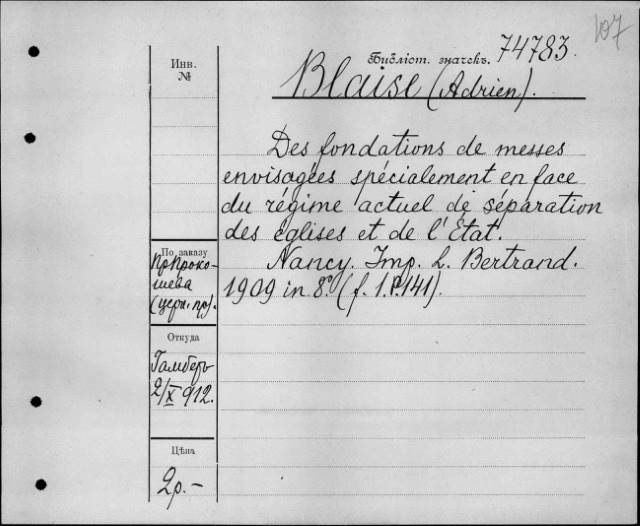 107
Инв.
№
Библіот. значекъ. 74783
Blaise (Adrien).
Des fondations de messes
envisagées spécialement en face
du régime actuel de séparation
des églises et de l'État.
Nancy. Imp. L. Bertrand.
1909 in 8º (f. 1. P. 141).
По заказу
Пр Проко-
шева
(церк. пр).
Откуда
Гамберъ
2/X 912.
Цѣна
2р.-